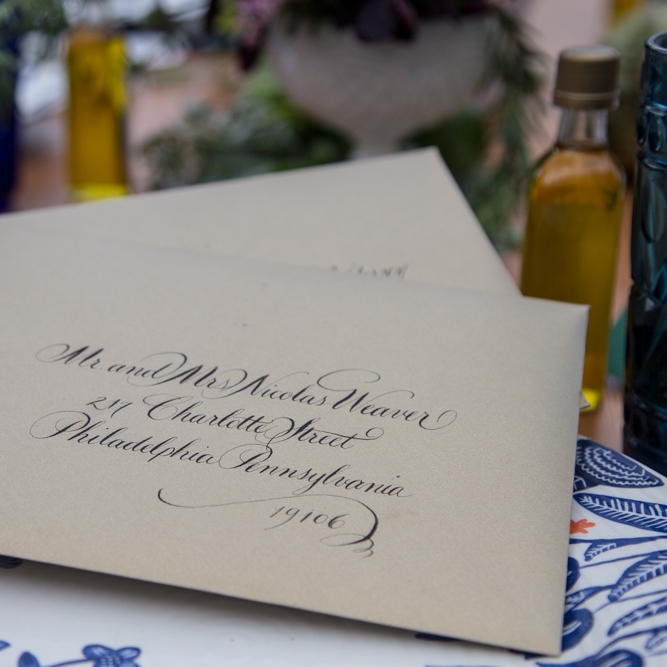 Mr and Mrs Nicolas Weaver
217 Charlotte Street
Philadelphia Pennsylvania
19106